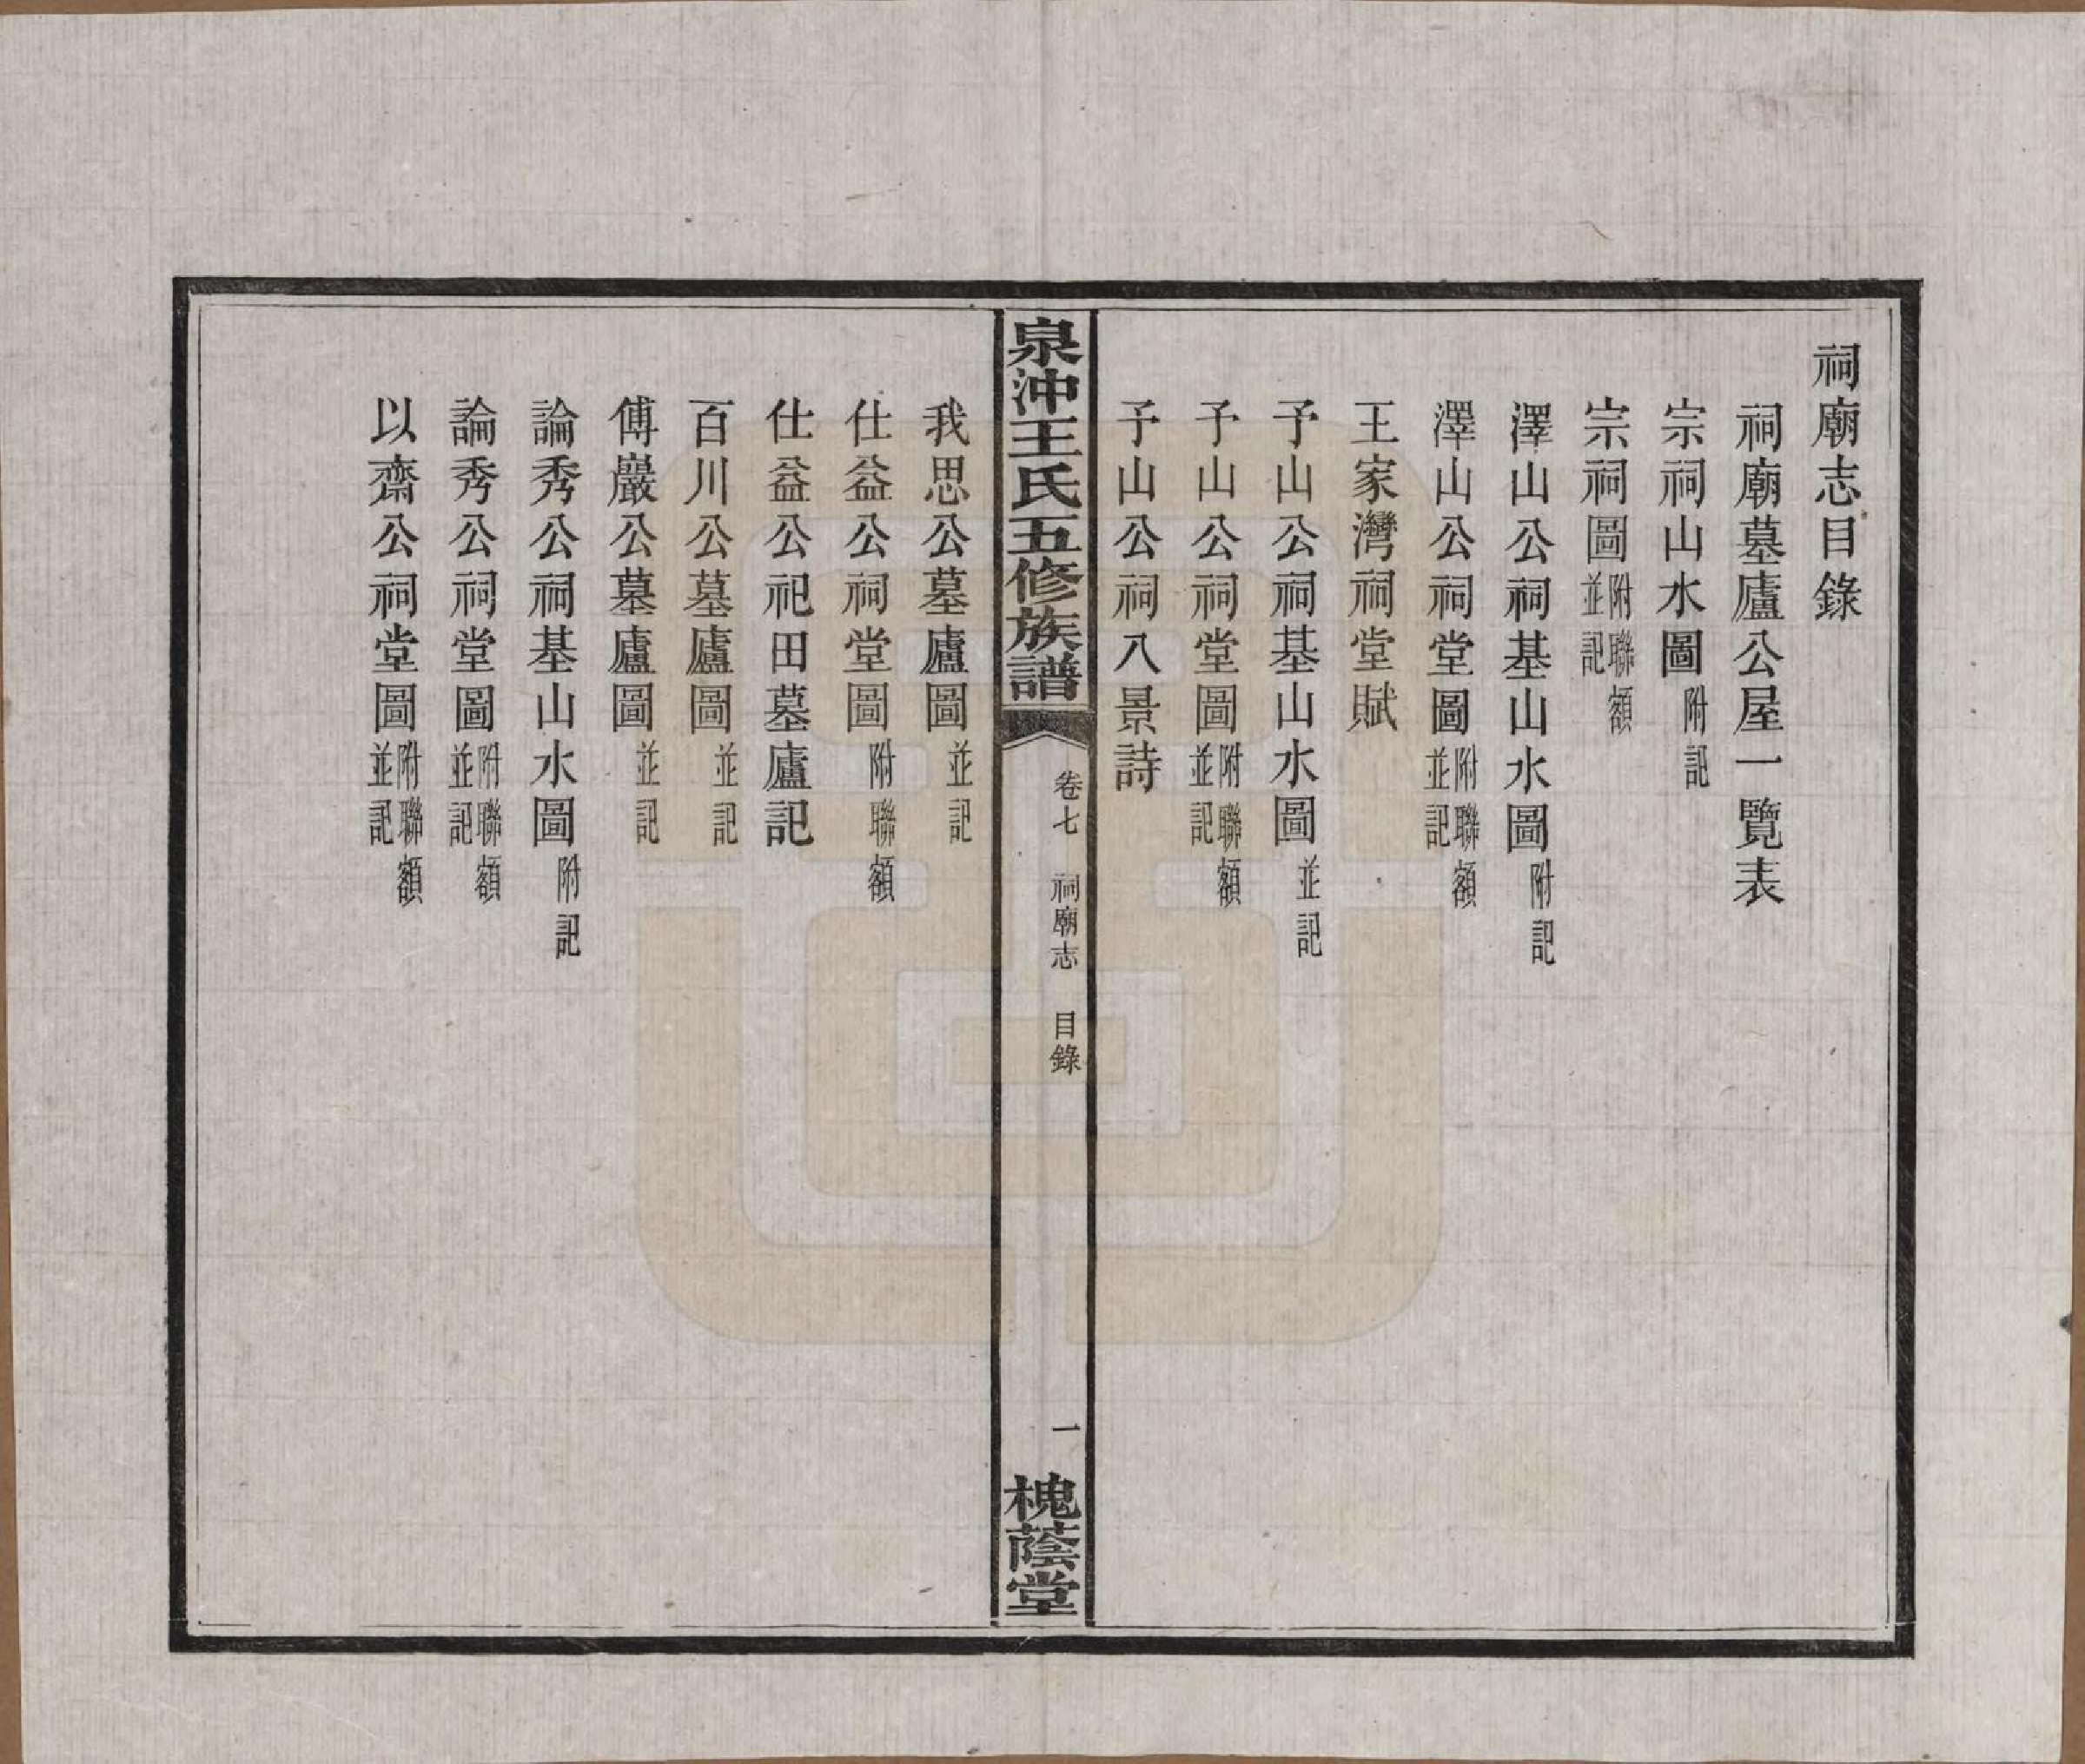 祠廟志目錄
祠廟墓廬公屋一覽表
宗祠山水圖附記
宗祠圖附聯額並記
澤山公祠基山水圖附記
澤山公祠堂圖附聯額並記
王家灣祠堂賦
予山公祠基山水圖並記
予山公祠堂圖附聯額並記
予山公祠八景詩
泉沖王氏五修族譜
卷七 祠廟志 目錄
一
槐蔭堂
我思公墓廬圖並記
仕益公祠堂圖附聯額
仕益公祀田墓廬記
百川公墓廬圖並記
傅巖公墓廬圖並記
論秀公祠基山水圖附記
論秀公祠堂圖附聯額並記
以齋公祠堂圖附聯額並記